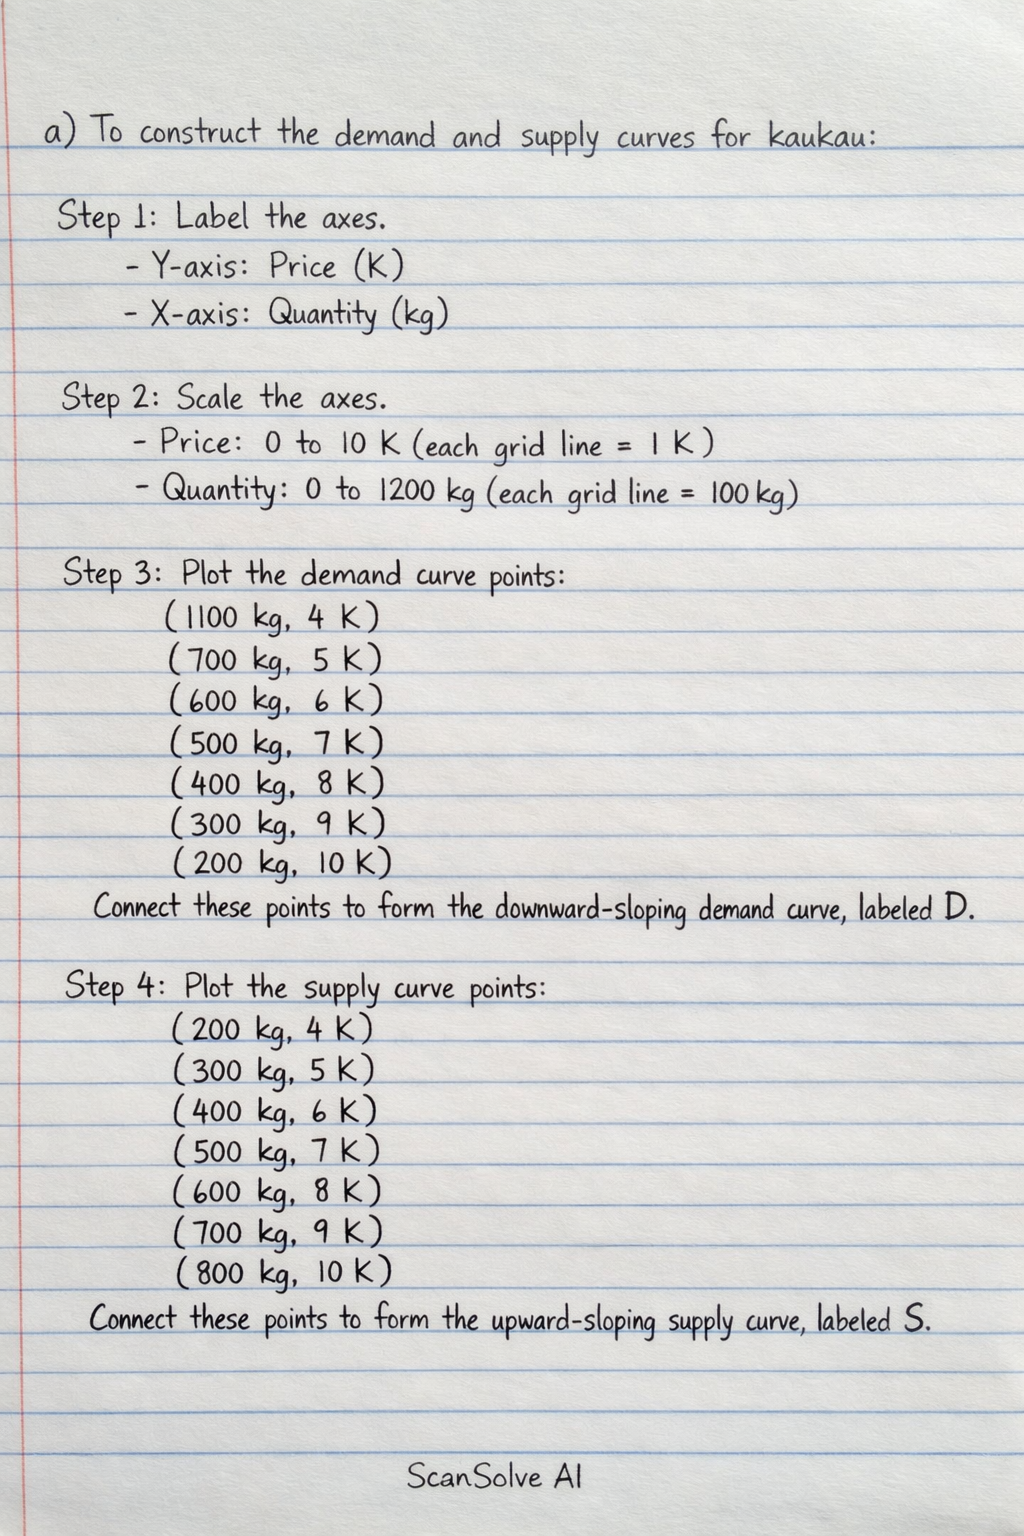 a) To construct the demand and supply curves for kaukau:
Step 1: Label the axes.
- Y-axis: Price (K)
- X-axis: Quantity (kg)
Step 2: Scale the axes.
- Price: 0 to 10 K (each grid line = 1 K)
- Quantity: 0 to 1200 kg (each grid line = 100 kg)
Step 3: Plot the demand curve points:
(1100 kg, 4 K)
(700 kg, 5 K)
(600 kg, 6 K)
(500 kg, 7 K)
(400 kg, 8 K)
(300 kg, 9 K)
(200 kg, 10 K)
Connect these points to form the downward-sloping demand curve, labeled D.
Step 4: Plot the supply curve points:
(200 kg, 4 K)
(300 kg, 5 K)
(400 kg, 6 K)
(500 kg, 7 K)
(600 kg, 8 K)
(700 kg, 9 K)
(800 kg, 10 K)
Connect these points to form the upward-sloping supply curve, labeled S.
ScanSolve AI